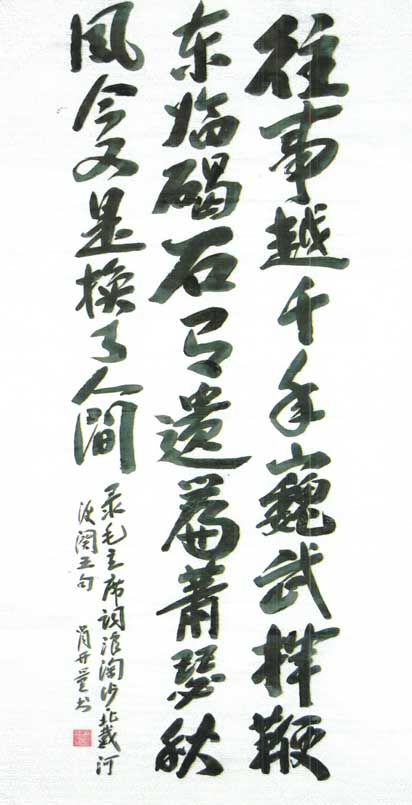 往事越千年巍武挥鞭
东临碣石有遗篇萧瑟秋
风今又是换了人间
录毛主席词浪淘沙北戴河
後阕五句
肖书